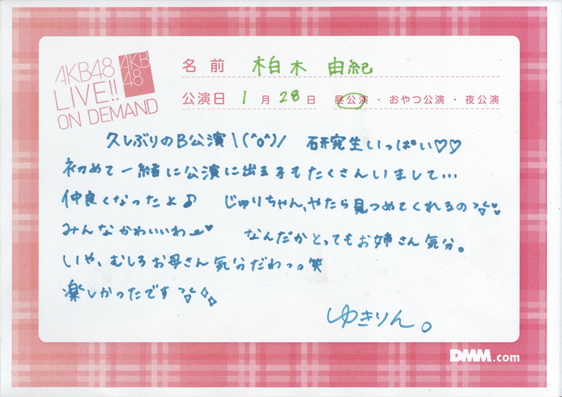 AKB48
LIVE!!
ON DEMAND
AKB
48
名前 柏木 由紀
公演日 1月28日 昼公演・おやつ公演・夜公演
久しぶりのB公演\(^o^)/ 研究生いっぱい♡♡
初めて一緒に公演に出る子もたくさんいまして…
仲良くなったよ♪ じゅりちゃん、やたら見つめてくれるの
みんなかわいいわ なんだかとってもお姉さん気分。
いや、むしろお母さん気分だわっ。笑
楽しかったです
ゆきりん。
DMM.com